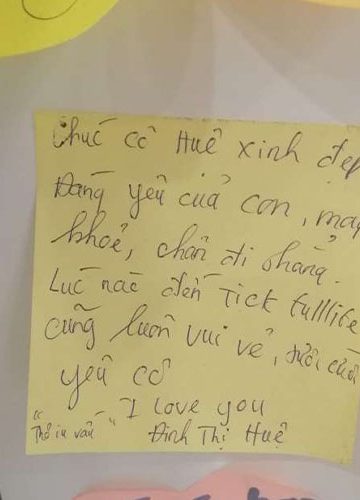 Chúc cô Huê xinh đẹp
Đáng yêu của con, may
khoẻ, chân đi
Lúc nào đến Tick Fulllife
cũng luôn vui vẻ, tười cười
yêu cô
I love you
" "
Đinh Thị Huệ